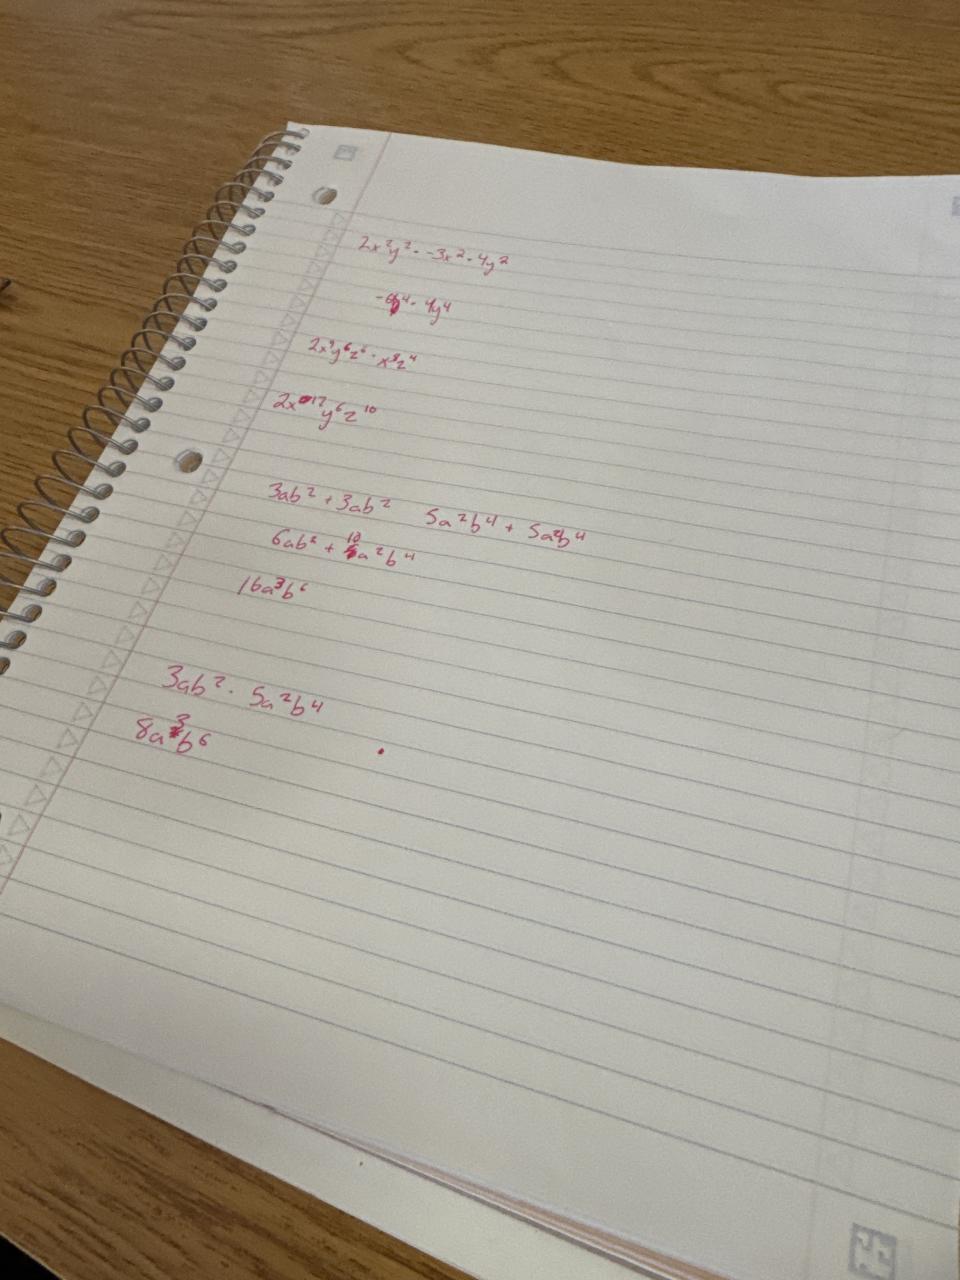 2x²y² · -3x² · 4y²
· 4y⁴
2x⁴y⁶z⁶ · x⁸z⁴
2x¹²y⁶z¹⁰
3ab² + 3ab² 5a²b⁴ + 5a²b⁴
6ab² + 10a²b⁴
16a³b⁶
3ab² · 5a²b⁴
8a³b⁶